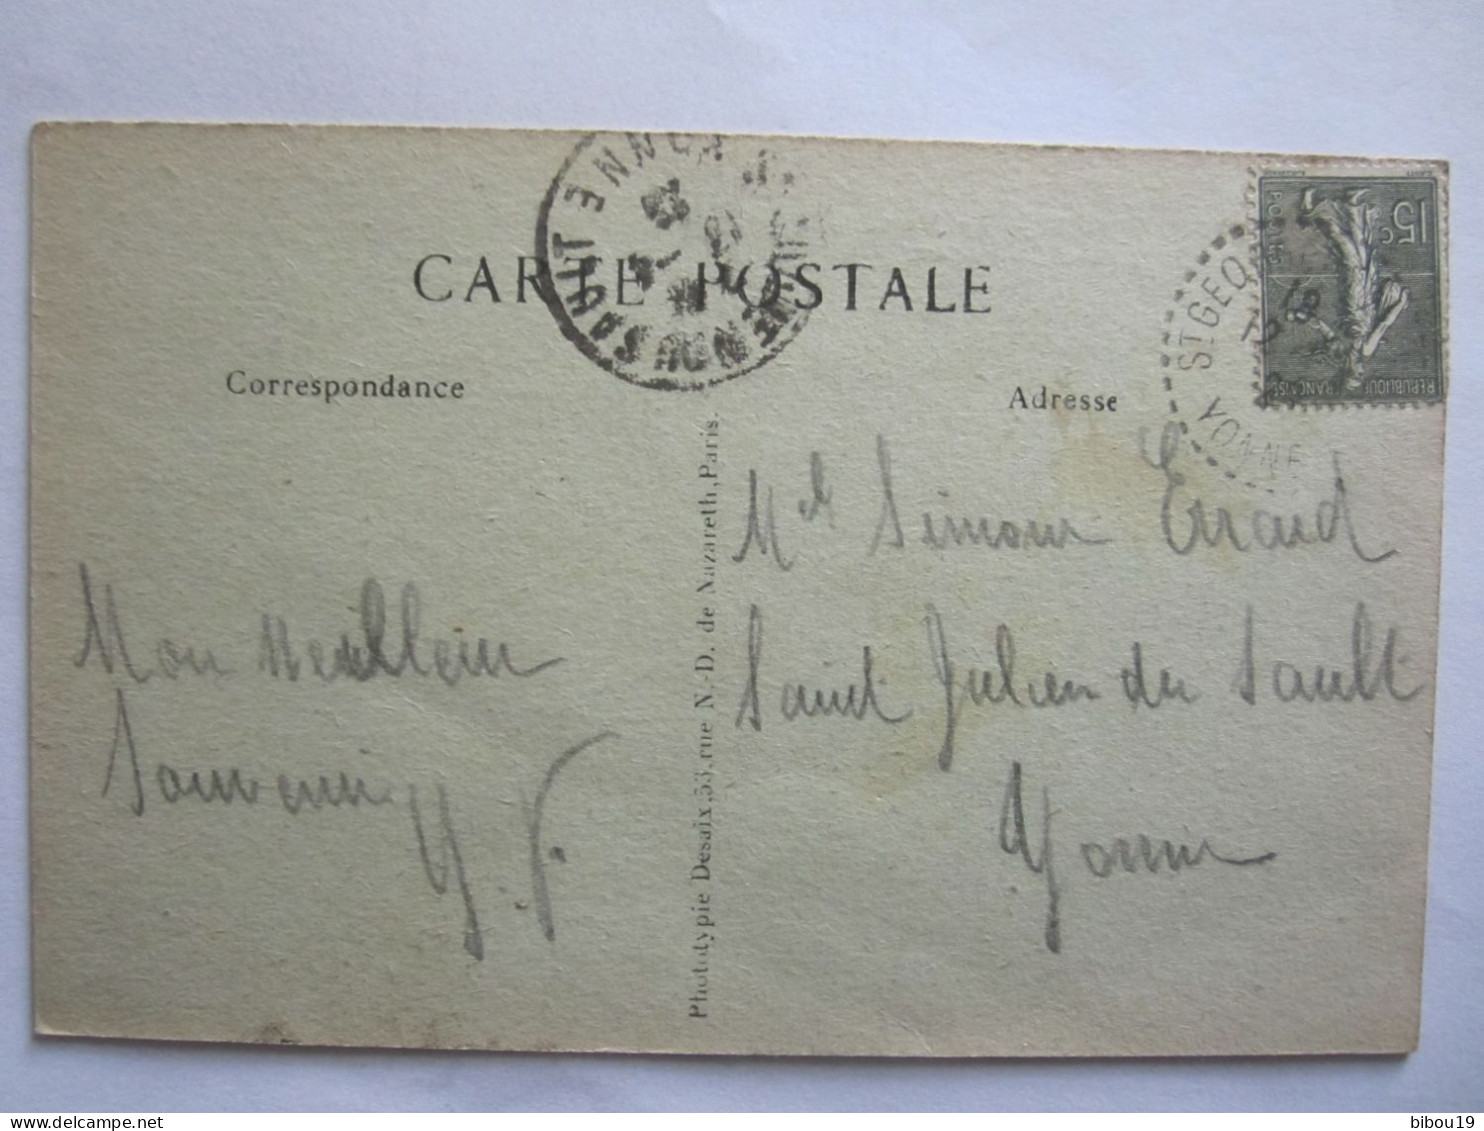 CARTE POSTALE
Correspondance
Adresse
15c
POSTES
REPUBLIQUE FRANÇAISE
ST GEO
YONNE
YONNE
Mon meilleur
Souvenir
Y. F.
Photolypie Desaix, 53, rue N.-D. de Nazareth, Paris.
Mel Simone Erraud
Saint Julien du Sault
Yonne
www.delcampe.net
bibou19